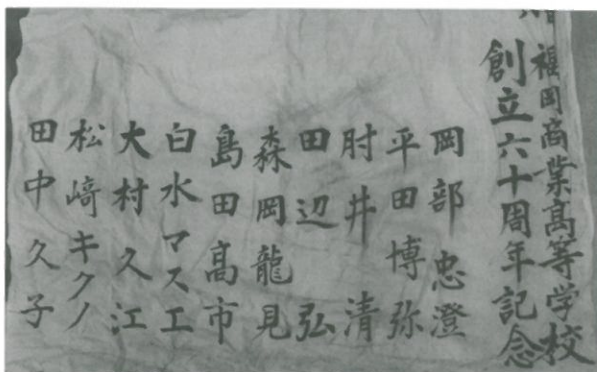 福岡商業高等学校
創立六十周年記念
岡部忠澄
平田博弥
肘井清
田辺弘
森岡龍見
島田高市
白水マスエ
大村久江
松﨑キクノ
田中久子